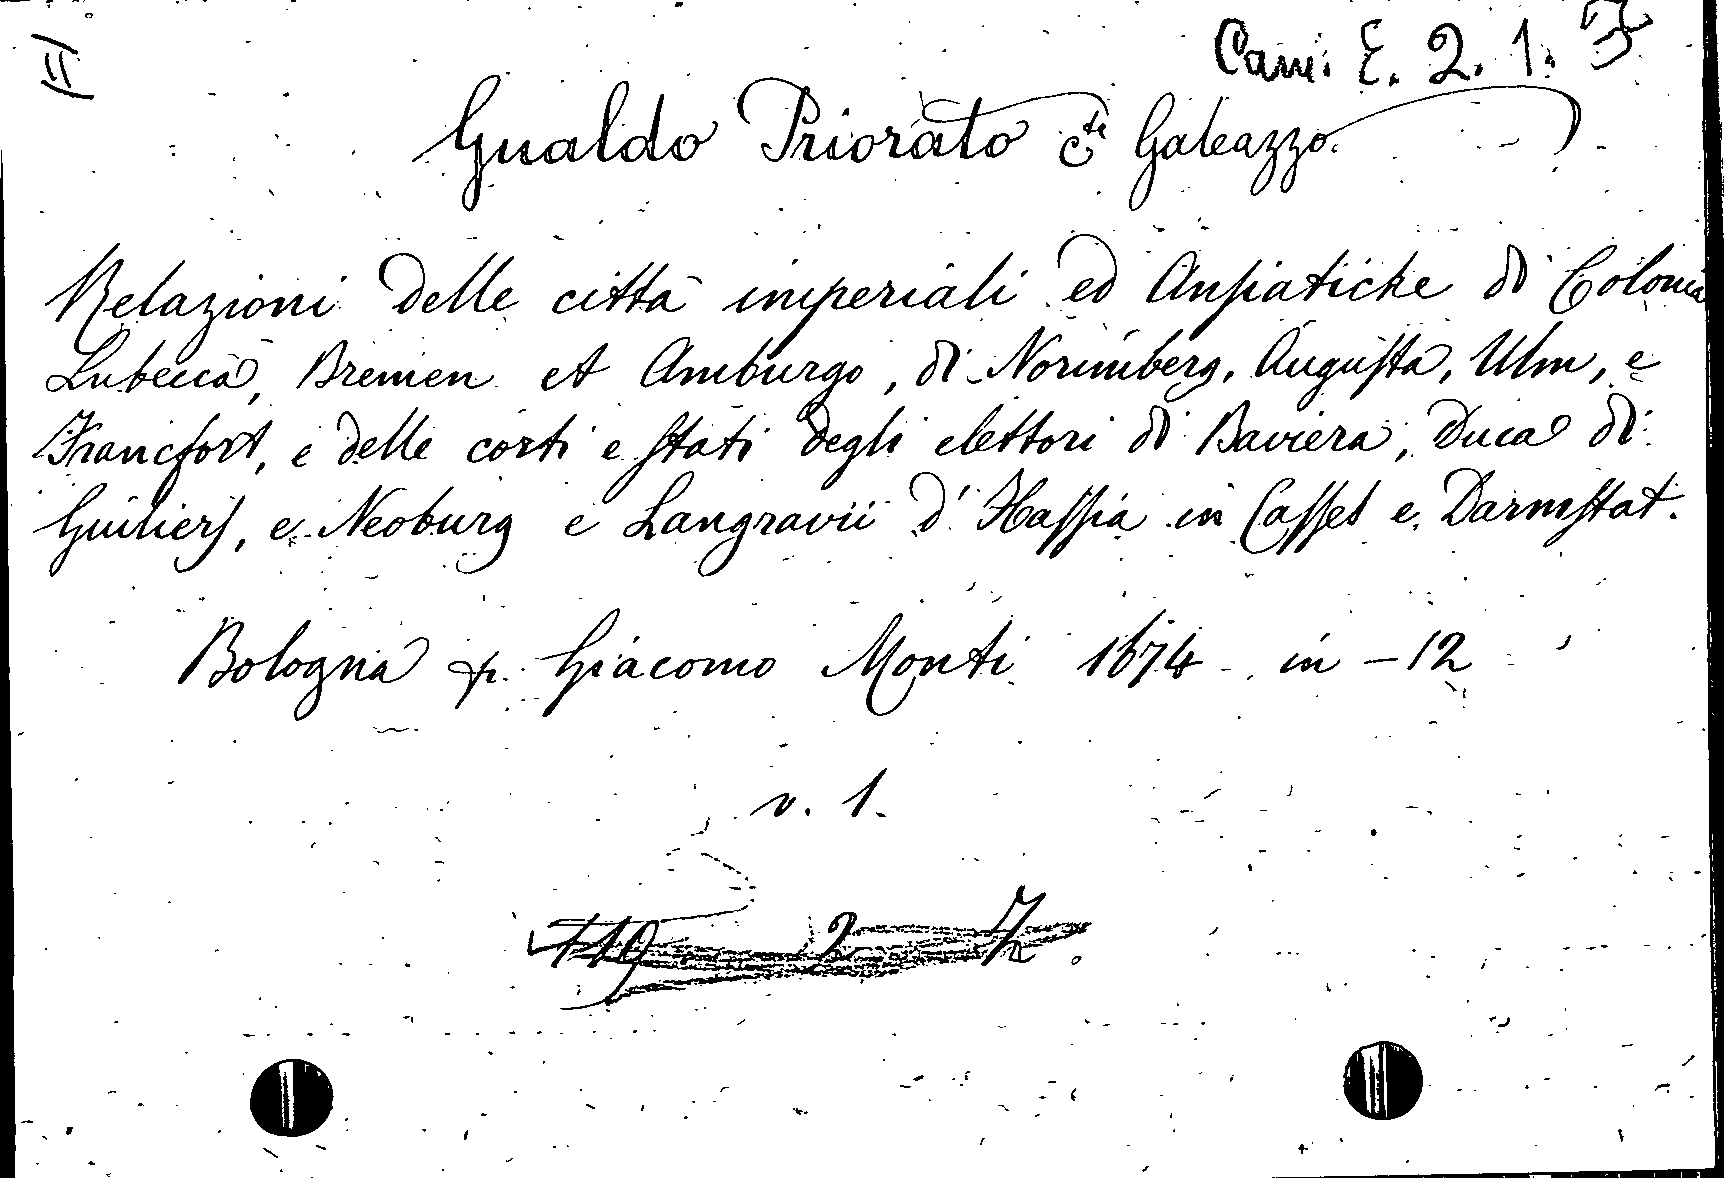 II
Cam. E. 2. 1.
Gualdo Priorato Cte Galeazzo.
Relazioni delle città imperiali ed Ansiatiche di Colonia
Lubecca, Bremen et Amburgo, di Norimberg, Augusta, Ulm, e
Francfort, e delle corti e stati degli elettori di Baviera, Duca di
Guiliers, e Neoburg e Langravii d'Hassia in Cassel e Darmstat.
Bologna p. Giacomo Monti 1674 in-12
v. 1.
119 2